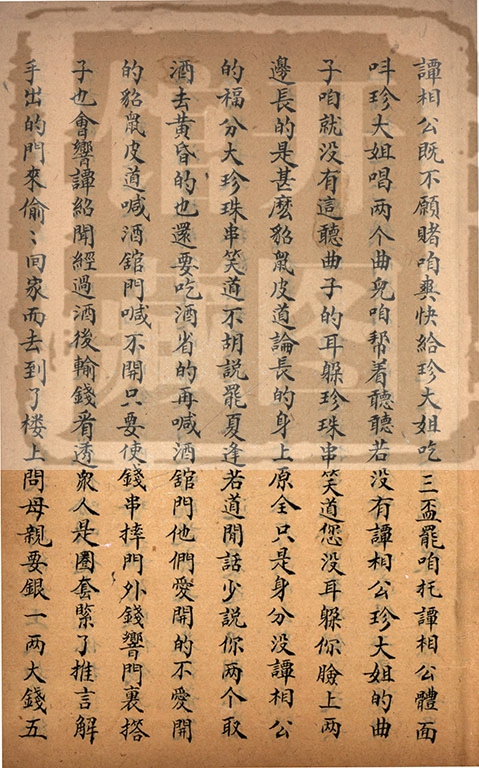 譚相公既不願賭咱爽快給珍大姐吃三盃罷咱托譚相公體面
呌珍大姐唱两个曲兒咱帮着聽聽若没有譚相公珍大姐的曲
子咱就没有這聽曲子的耳躲珍珠串笑道您没耳躲你臉上两
邊長的是甚麽貂䑕皮道論長的身上原全只是身分没譚相公
的福分大珍珠串笑道不胡説罷夏逢若道閒話少説你两个取
酒去黄昏的也還要吃酒省的再喊酒舘門他們愛開的不愛開
的貂䑕皮道喊酒舘門喊不開只要使錢串摔門外錢響門裏搭
子也會響譚紹聞經過酒後輸錢看透眾人是圈套緊了推言解
手出的門來偷〻囬家而去到了楼上問母親要銀一两大錢五